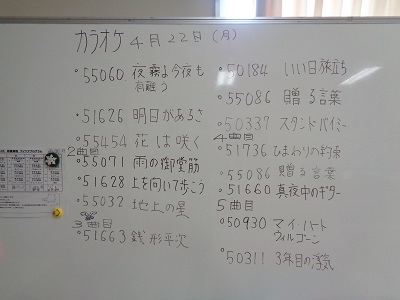 カラオケ 4月22日(月)
°55060 夜霧よ今夜も
有難う
°51626 明日があるさ
°55454 花は咲く
2曲目
°55071 雨の御堂筋
°51628 上を向いて歩こう
°55032 地上の星
3曲目
°51663 銭形平次
°50184 いい日旅立ち
°55086 贈る言葉
°50337 スタンドバイミー
4曲目
°51736 ひまわりの約束
°55086 贈る言葉
°51660 真夜中のギター
5曲目
°50930 マイ・ハート
ウィルゴーン
°50311 3年目の浮気